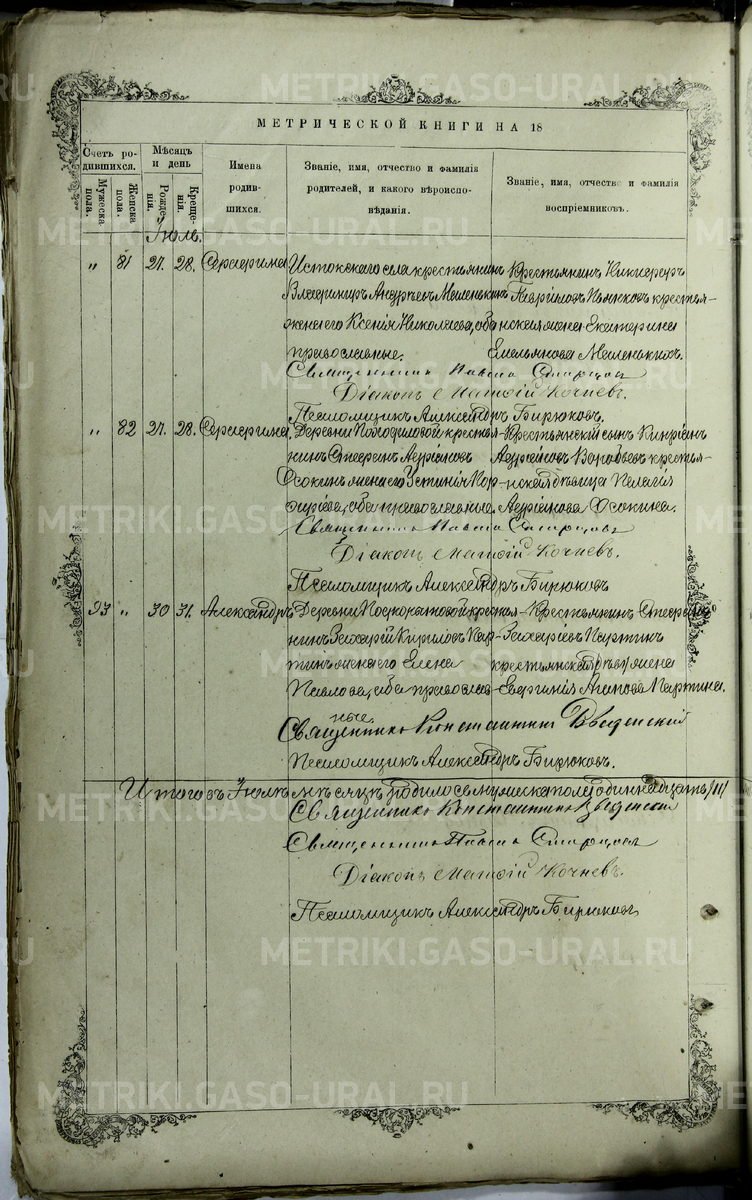 МЕТРИЧЕСКОЙ КНИГИ НА 18
Счетъ ро-
дившихся.
Мужеска
пола.
Женска
пола.
Мѣсяцъ
и день
Рожде-
нія.
Креще-
нія.
Имена
родив-
шихся.
Званіе, имя, отчество и фамилія
родителей, и какого вѣроиспо-
вѣданія.
Званіе, имя, отчество и фамилія
воспріемниковъ.
Іюль.
" 81 27. 28. Серафима
Истокскаго села крестьянинъ
Владиміръ Андреевъ Маленькихъ
жена его Ксенія Николаева, оба
православные.
Крестьянинъ Никифоръ
Гавриловъ Пьянковъ, крестья-
нская жена Екатерина
Емельянова Маленькихъ.
Священникъ Павелъ Старцовъ
Діаконъ Матѳій Кочневъ.
Псаломщикъ Александръ Бирюковъ.
" 82 27. 28. Серафима.
Деревни Походиловой крестья-
нинъ Стефанъ Адріановъ
Осокинъ жена его Устинія Пор-
фирьева, оба православные.
Крестьянскій сынъ Кипріанъ
Воробьевъ крестья-
нская дѣвица Пелагія
Адріанова Осокина.
Священникъ Павелъ Старцовъ
Діаконъ Матѳій Кочневъ.
Псаломщикъ Александръ Бирюковъ
93 " 30 31. Александръ
Деревни крестья-
нинъ Захарій Кириловъ Пар-
тинъ жена его Елена
Павлова, оба православ-
ные.
Крестьянинъ Стефанъ
Захаріевъ Партинъ
крестьянская жена
Евгенія Агапова Партина.
Священникъ Константинъ Введенскій
Псаломщикъ Александръ Бирюковъ.
Итого въ Іюлѣ мѣсяцѣ родилось мужеска пола одиннадцать /11/
Священникъ Константинъ Введенскій
Священникъ Павелъ Старцовъ
Діаконъ Матѳій Кочневъ.
Псаломщикъ Александръ Бирюковъ
METRIKI.GASO-URAL.RU